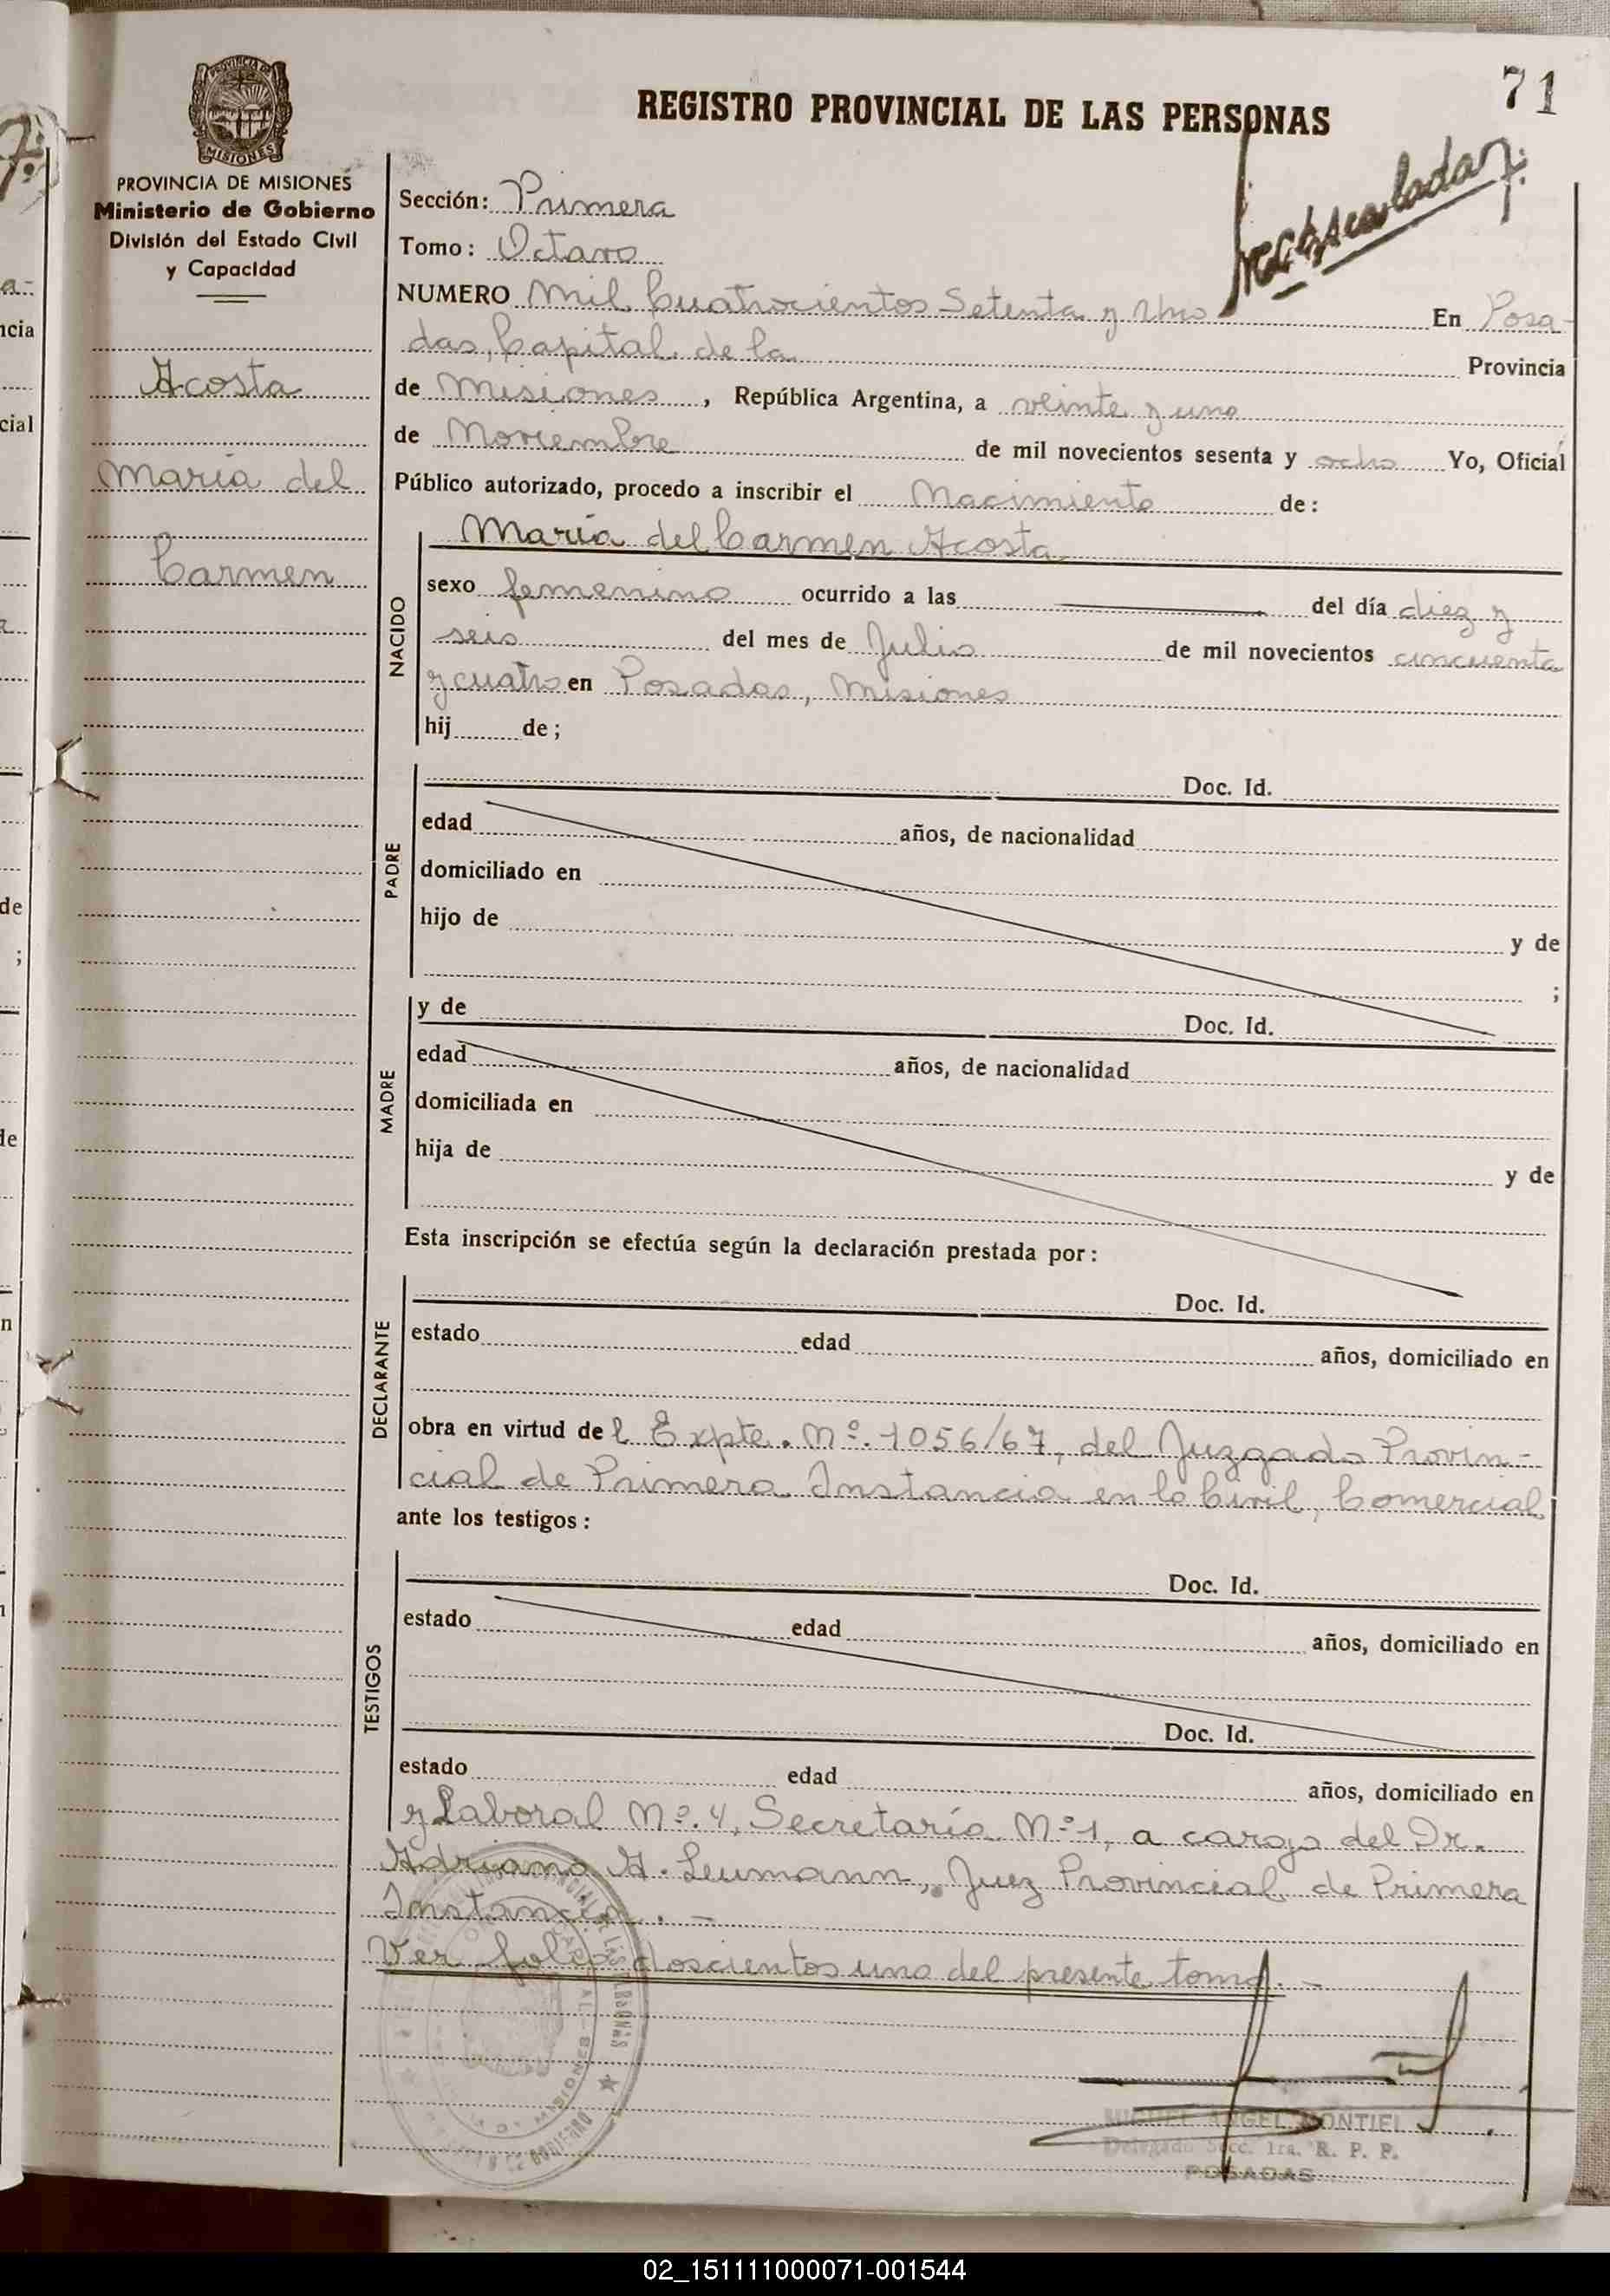 71
REGISTRO PROVINCIAL DE LAS PERSONAS
PROVINCIA DE MISIONES
MISIONES
PROVINCIA DE MISIONES
Ministerio de Gobierno
División del Estado Civil
y Capacidad
Acosta
María del
Carmen
Sección: Primera
Tomo: Octavo
NUMERO Mil Cuatrocientos Setenta y Uno En Posa-
das, Capital de la Provincia
de Misiones, República Argentina, a veinte y uno
de Noviembre de mil novecientos sesenta y ocho Yo, Oficial
Público autorizado, procedo a inscribir el Nacimiento de:
María del Carmen Acosta
NACIDO
sexo femenino ocurrido a las del día diez y
seis del mes de Julio de mil novecientos cincuenta
y cuatro en Posadas, Misiones
hij de;
PADRE
Doc. Id.
edad años, de nacionalidad
domiciliado en
hijo de y de
;
MADRE
y de Doc. Id.
edad años, de nacionalidad
domiciliada en
hija de y de
Esta inscripción se efectúa según la declaración prestada por:
DECLARANTE
Doc. Id.
estado edad años, domiciliado en
obra en virtud del Expte. Nº. 1056/67, del Juzgado Provin-
cial de Primera Instancia en lo Civil, Comercial
ante los testigos:
TESTIGOS
Doc. Id.
estado edad años, domiciliado en
Doc. Id.
estado edad años, domiciliado en
y Laboral Nº. 4, Secretaría Nº 1, a cargo del Dr.
Adriano A. Leumann, Juez Provincial de Primera
Instancia. -
Ver folio doscientos uno del presente tomo. -
MIGUEL ANGEL MONTIEL
Delegado Secc. 1ra. R. P. P.
POSADAS
02_151111000071-001544